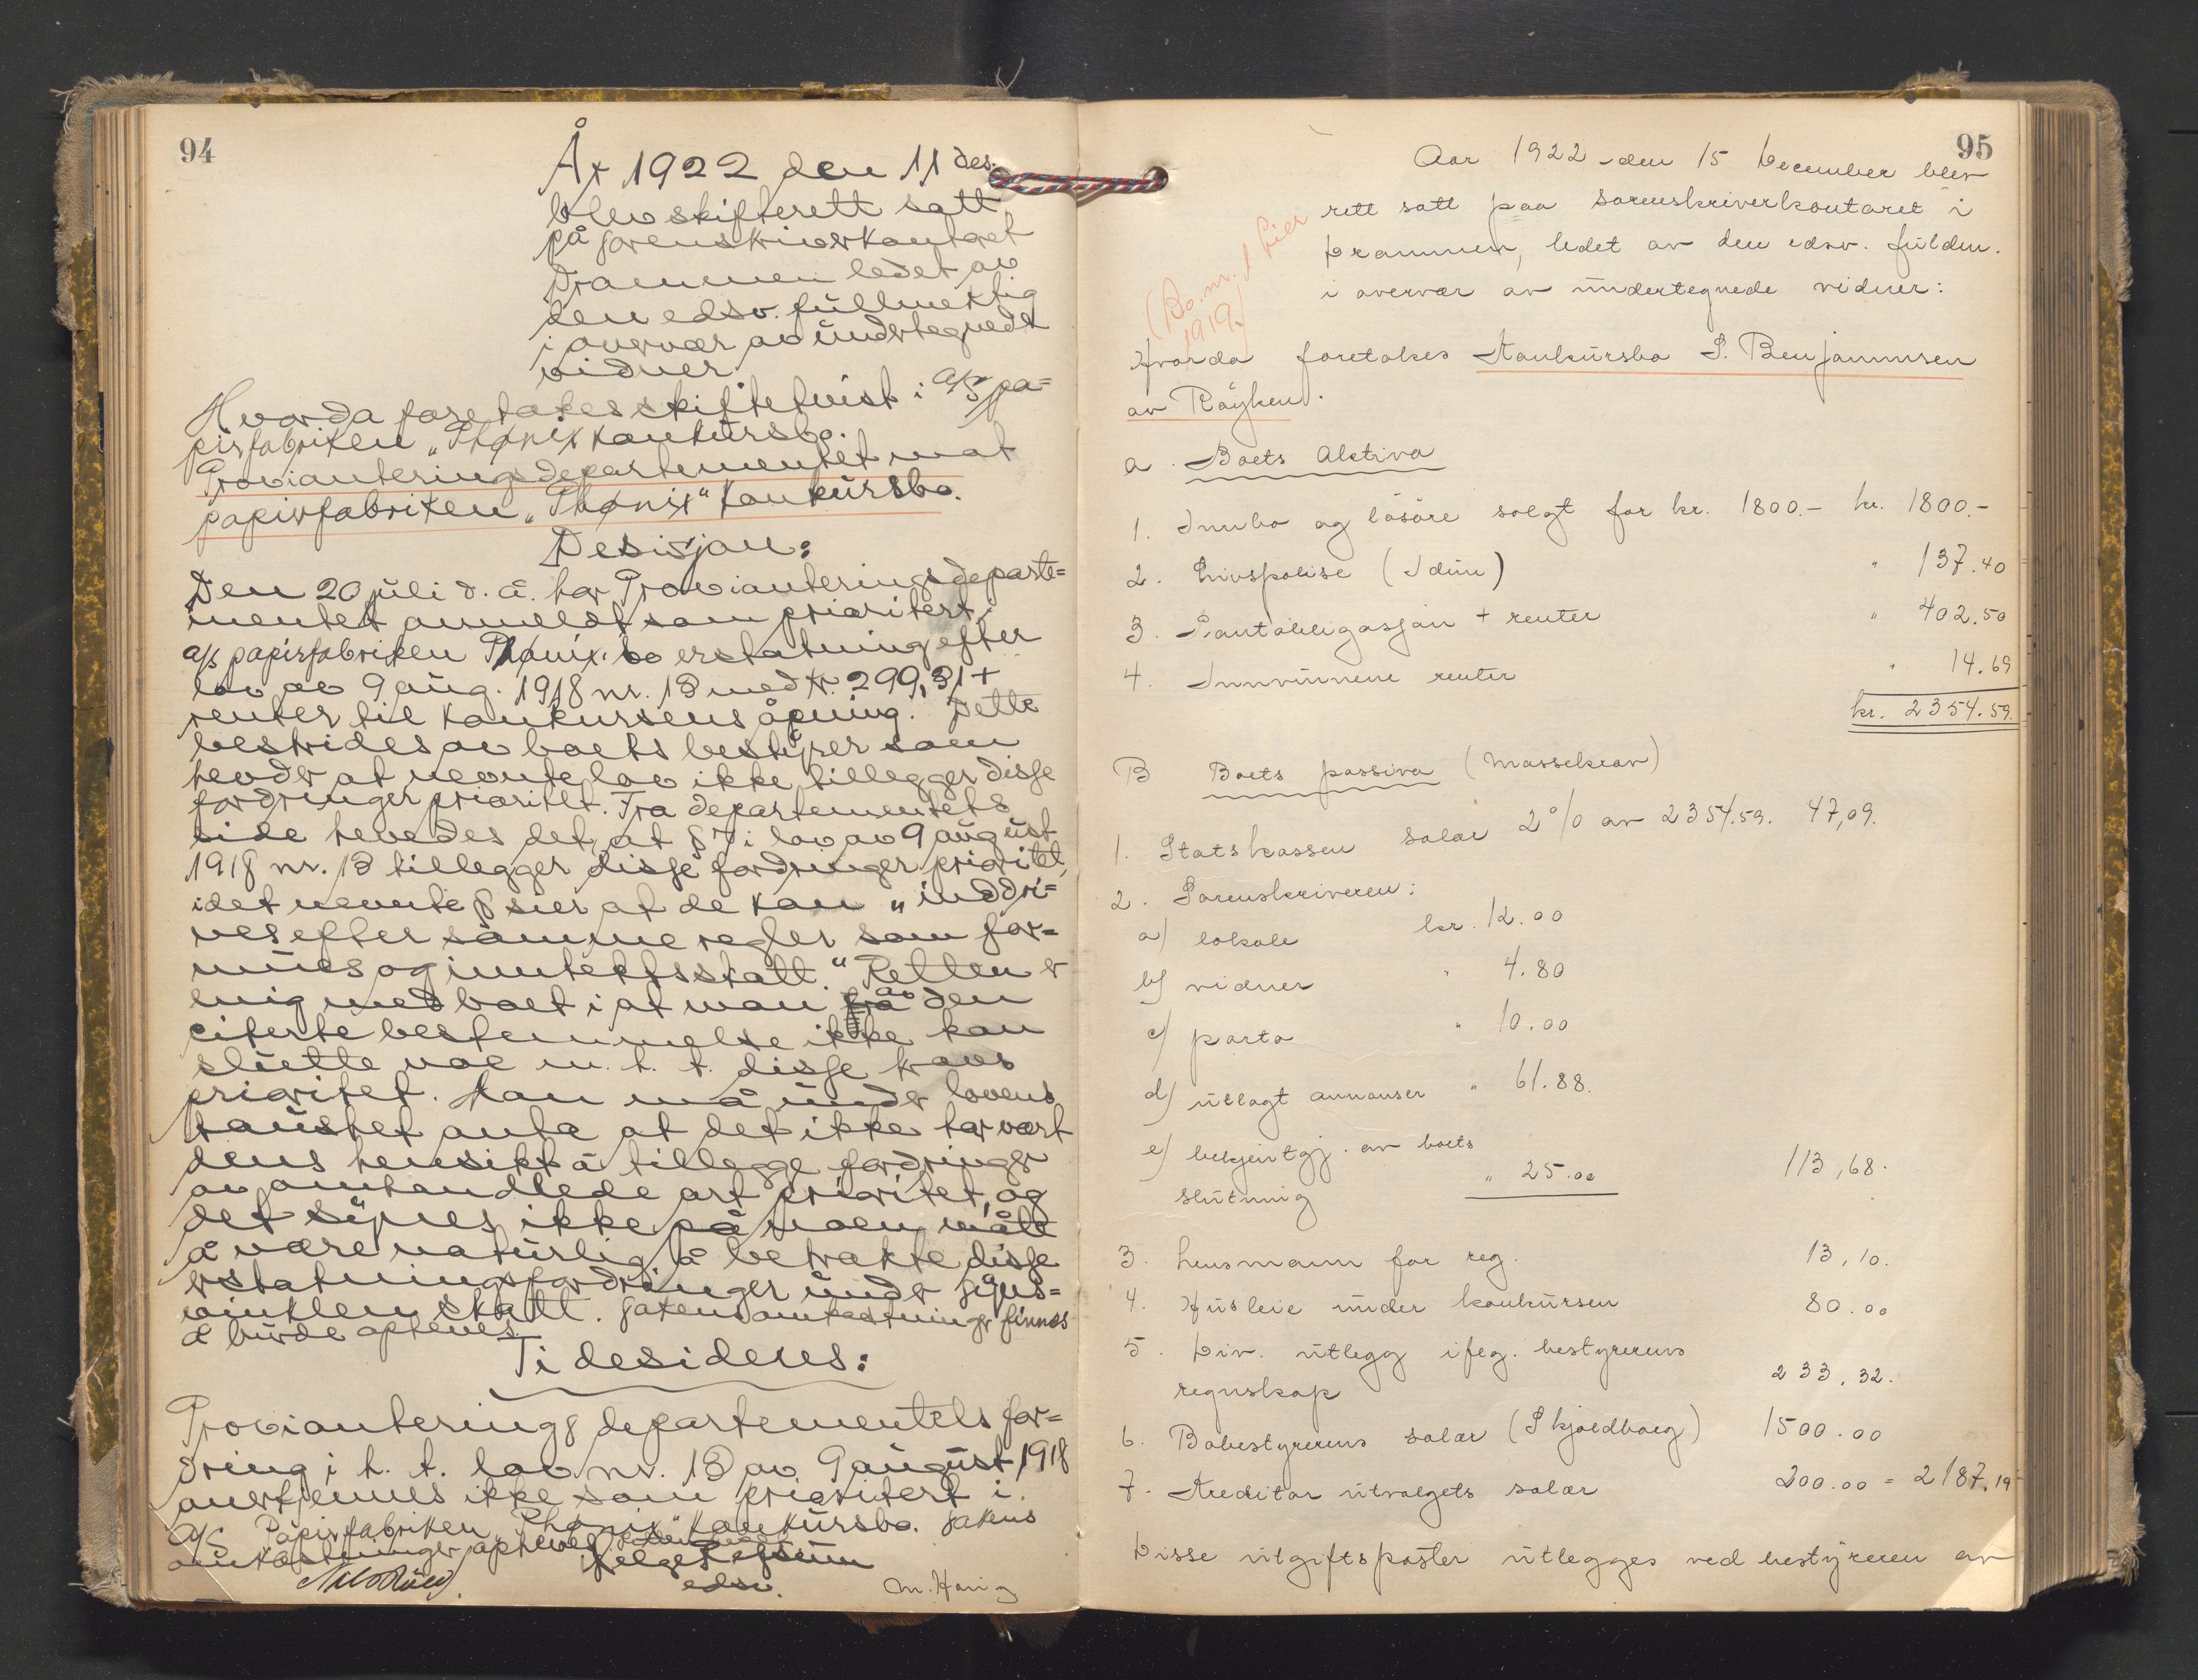 94
År 1922 den 11 des.
blev skifterett satt
på sorenskriverkontoret
Drammen ledet av
den edsv. fullmektig
i overvær av undertegnede
vidner
Hvorda foretokes skiftetvist i A/S pa=
pirfabriken „Phønix konkursbo.
Provianteringsdepartementet mot
papirfabriken „Phønix" konkursbo.
Desisjon:
Den 20 juli d. å. har Provianteringsdeparte=
mentet anmeldt som prioritert i
a/s papirfabriken Phønix' bo erstatning efter
lov av 9 aug. 1918 nr. 13 med kr. 299,31 +
renter til konkursens åpning. Dette
bestrides av boets bestyrer som
hevder at nevnte lov ikke tillegger disse
fordringer prioritet. Fra departementets
side hevdes det, at § 7 i lov av 9 august
1918 nr. 13 tillegger disse fordringer prioritet,
idet nevnte § sier at de kan „inddri=
ves efter samme regler som for=
mues og inntektsskatt." Retten er
enig med boet i at man av den
citerte bestemmelse ikke kan
slutte noe m. h. t. disse kravs
prioritet. Man må under lovens
taushet anta at det ikke har vært
dens hensikt å tillegge fordringer
av omhandlede art prioritet, og
det synes ikke på noen måte
å være naturlig å betrakte disse
erstatningsfordringer under syns=
vinklen skatt. Sakens omkostninger finnes
å burde opheves.
Ti desideres:
Provianteringsdepartementets for=
dring i h. t. lov nr. 13 av 9 august 1918
anerkjennes ikke som prioritert i
A/S Papirfabriken „Phønix" konkursbo. Sakens
omkostninger opheves.
Helge Refsum
edsv.
M. Horig
95
Aar 1922 den 15 December blev
rett satt paa sorenskriverkontoret i
Drammen, ledet av den edsv. fuldm.
i overvær av undertegnede vidner:
(Bo. nr. 1 Lier
1919.)
Hvorda foretokes Konkursbo S. Benjaminsen
av Røyken.
a. Boets Aktiva
1. Innbo og løsøre solgt for kr. 1800.- kr. 1800.-
2. Livspolise (Idun) " 137.40
3. Pantobligasjon + renter " 402.50
4. Innvunnene renter " 14.69
kr. 2354.59.
B Boets passiva (Massekrav)
1. Statskassen salær 2% av 2354.59. 47,09.
2. Sorenskriveren:
a) lokale kr. 12.00
b) vidner " 4.80
c) porto " 10.00
d) utlagt annonser " 61.88.
e) bekjentgj. av boets
slutning " 25.00 113,68.
3. Lensmann for reg. 13,10.
4. Husleie under konkursen 80.00
5. Div. utlegg iføg. bestyrerens
regnskap 233,32.
6. Bobestyrerens salær (Skjoldborg) 1500.00
7. Kreditor utvalgets salær 200.00 = 2187.19
Disse utgiftsposter utlegges ved bestyreren av